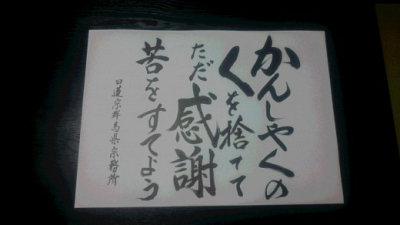 かんしゃくの
くを捨てて
ただ感謝
苦をすてよう
日蓮宗群馬県宗務所